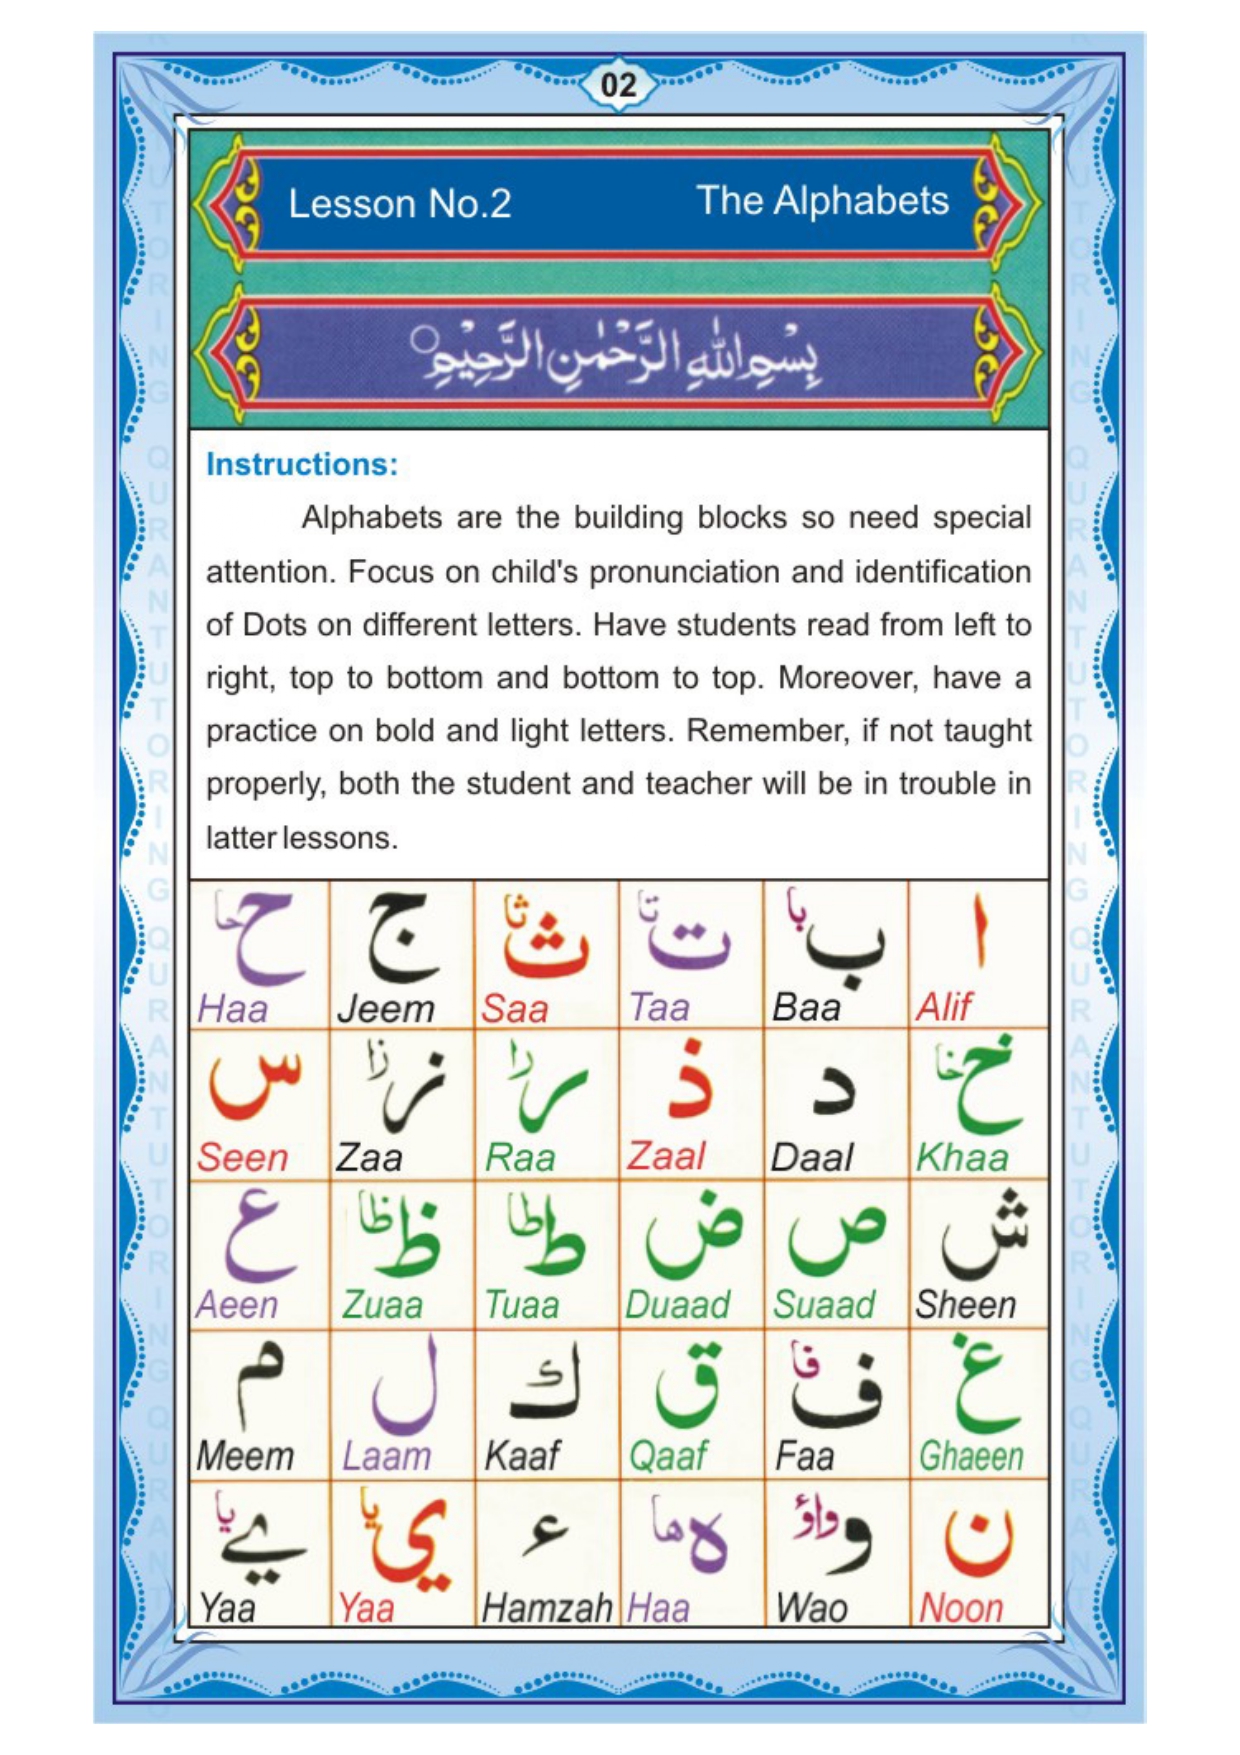 02
Lesson No.2 The Alphabets
بِسْمِ اللّٰهِ الرَّحْمٰنِ الرَّحِيْمِ○
Instructions:
Alphabets are the building blocks so need special
attention. Focus on child's pronunciation and identification
of Dots on different letters. Have students read from left to
right, top to bottom and bottom to top. Moreover, have a
practice on bold and light letters. Remember, if not taught
properly, both the student and teacher will be in trouble in
latter lessons.
ا ب با ت تا ث ثا ج ح حا
Alif Baa Taa Saa Jeem Haa
خ خا د ذ ر را ز زا س
Khaa Daal Zaal Raa Zaa Seen
ش ص ض ط طا ظ ظا ع
Sheen Suaad Duaad Tuaa Zuaa Aeen
غ ف فا ق ك ل م
Ghaeen Faa Qaaf Kaaf Laam Meem
ن و واؤ ه ها ء ي یا ے یا
Noon Wao Haa Hamzah Yaa Yaa
QURAN TUTORING
QURAN TUTORING